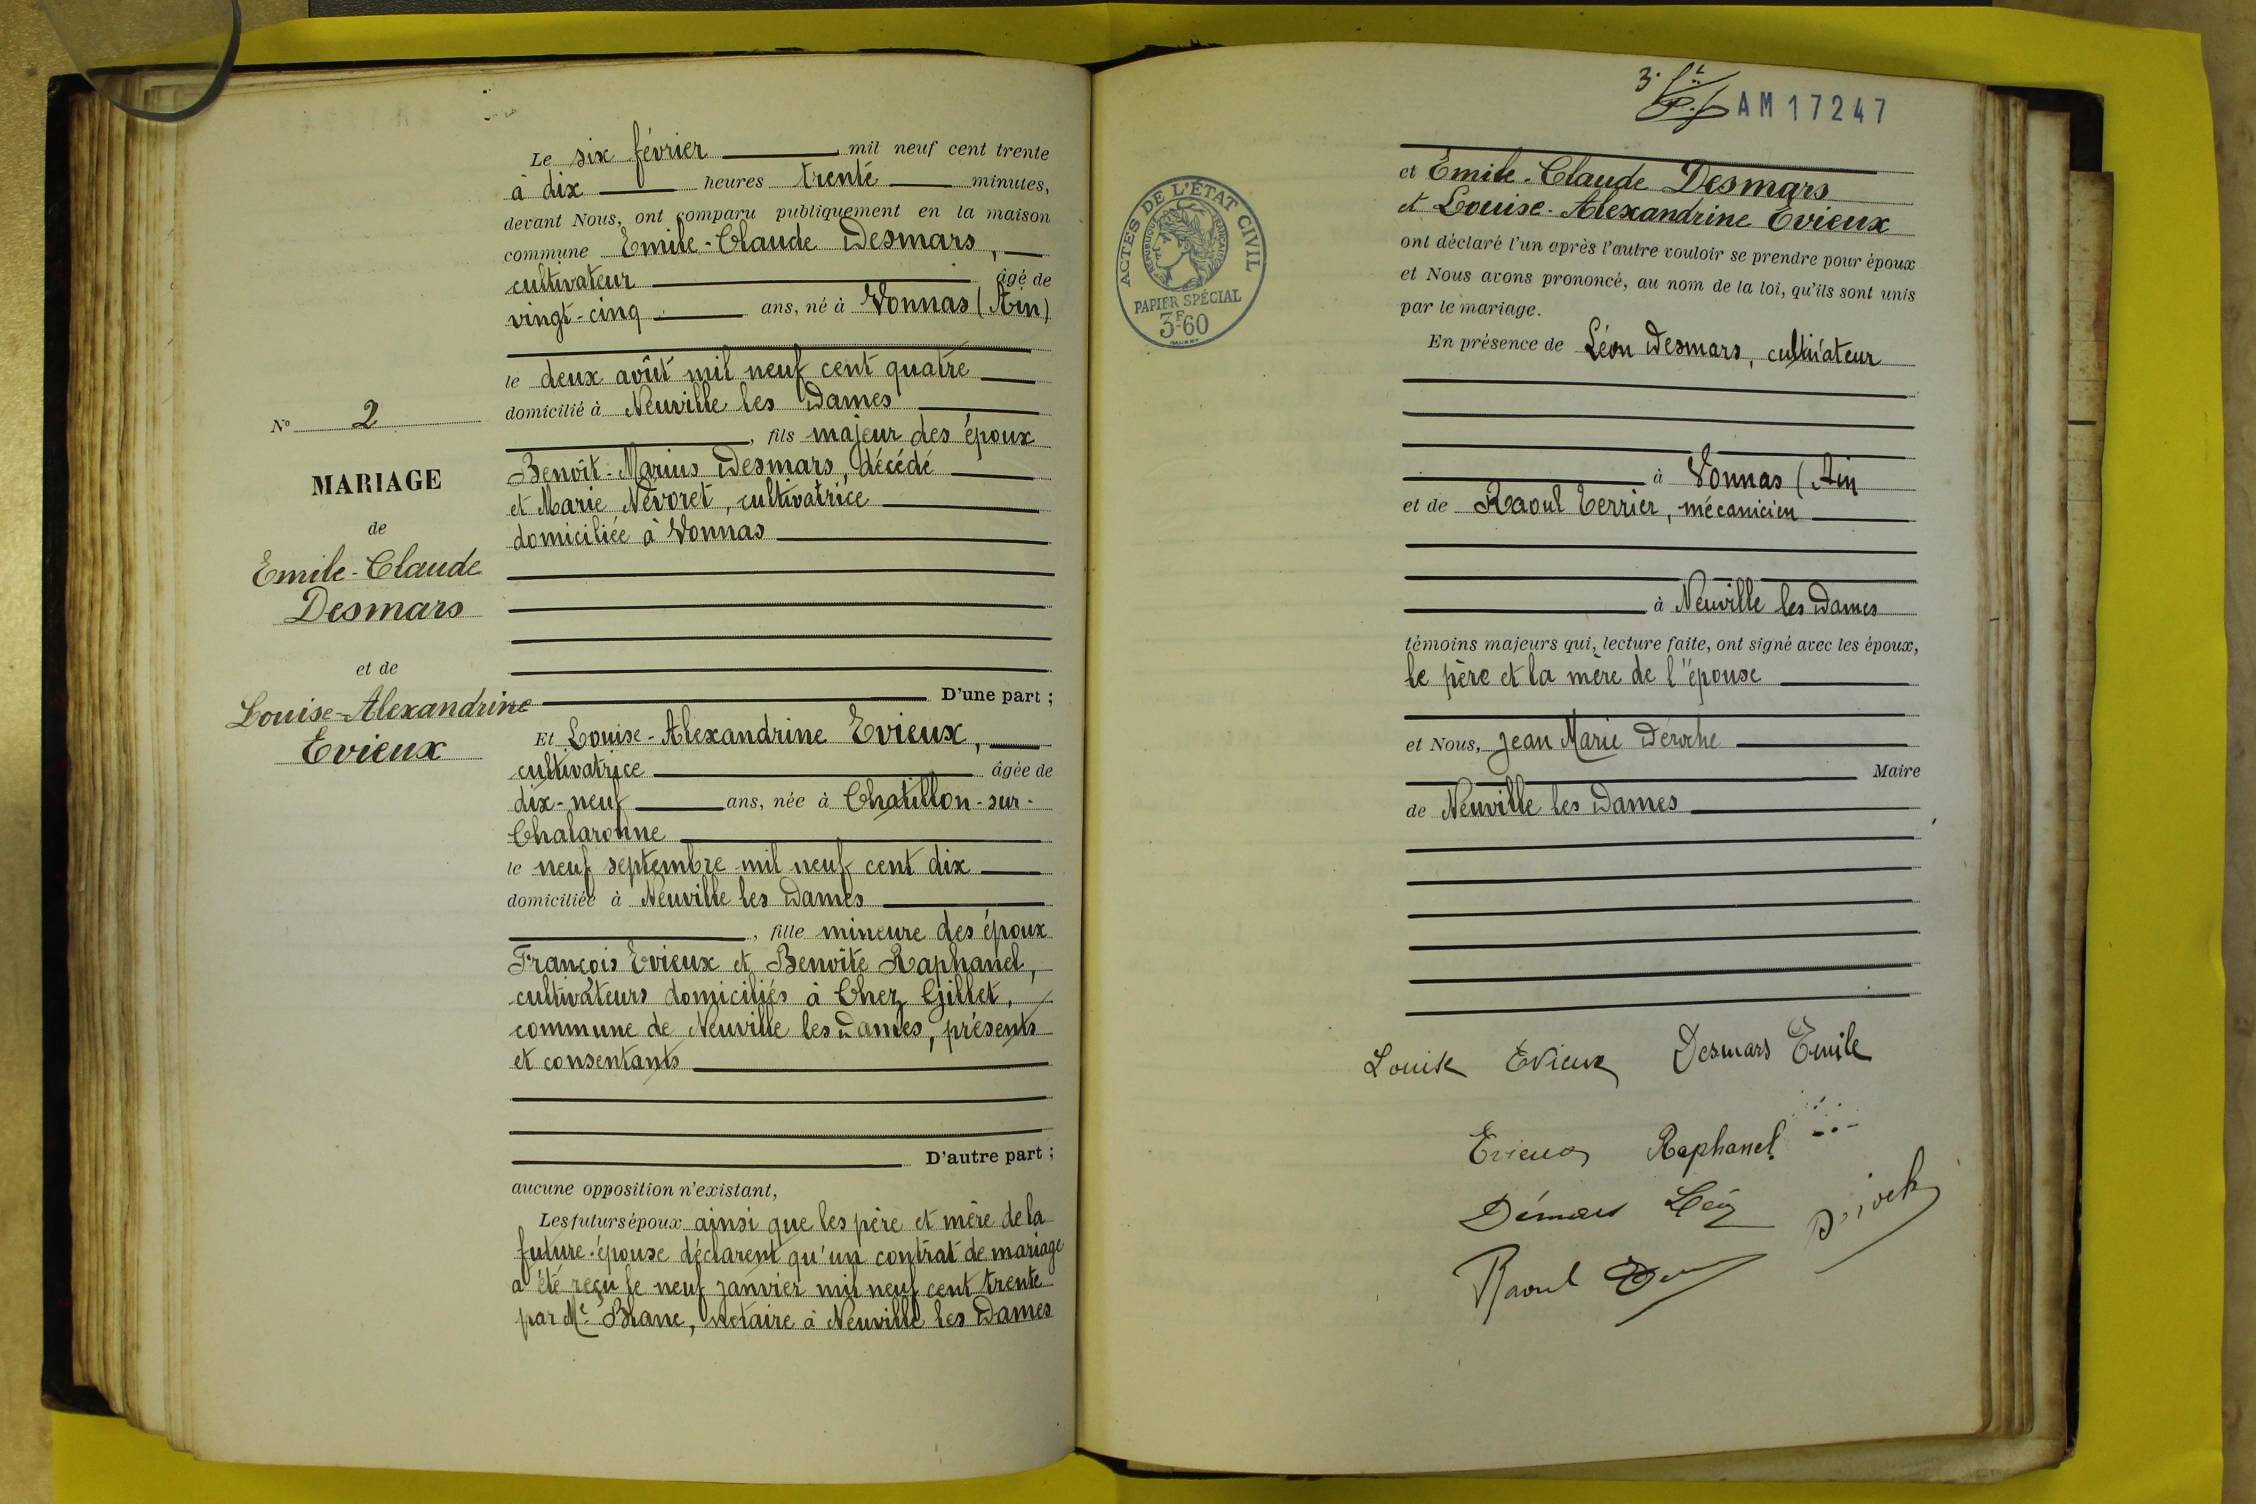 Le six février mil neuf cent trente
à dix heures trente minutes,
devant Nous, ont comparu publiquement en la maison
commune Emile-Claude Desmars,
cultivateur âgé de
vingt-cinq ans, né à Vonnas (Ain)
le deux août mil neuf cent quatre
domicilié à Neuville les Dames
, fils majeur des époux
Benoît-Marius Desmars, décédé
et Marie Névoret, cultivatrice
domiciliée à Vonnas
D'une part ;
N° 2
MARIAGE
de
Emile-Claude
Desmars
et de
Louise-Alexandrine
Evieux
Et Louise-Alexandrine Evieux,
cultivatrice âgée de
dix-neuf ans, née à Chatillon-sur-
Chalaronne
le neuf septembre mil neuf cent dix
domiciliée à Neuville les Dames
, fille mineure des époux
François Evieux et Benoîte Raphanel,
cultivateurs domiciliés à Chez Gillet,
commune de Neuville les Dames, présents
et consentants
D'autre part ;
aucune opposition n'existant,
Les futurs époux ainsi que les père et mère de la
future-épouse déclarent qu'un contrat de mariage
a été reçu le neuf janvier mil neuf cent trente
par Me Blanc, notaire à Neuville les Dames
AM 17247
ACTES DE L'ÉTAT CIVIL
RÉPUBLIQUE FRANÇAISE
PAPIER SPÉCIAL
3F60
et Émile-Claude Desmars
et Louise-Alexandrine Evieux
ont déclaré l'un après l'autre vouloir se prendre pour époux
et Nous avons prononcé, au nom de la loi, qu'ils sont unis
par le mariage.
En présence de Léon Desmars, cultivateur
à Vonnas (Ain
et de Raoul Terrier, mécanicien
à Neuville les Dames
témoins majeurs qui, lecture faite, ont signé avec les époux,
le père et la mère de l'épouse
et Nous, Jean Marie Déroche
Maire
de Neuville les Dames
Louise Evieux Desmars Emile
Evieux Raphanel
Démars Léon
Raoul